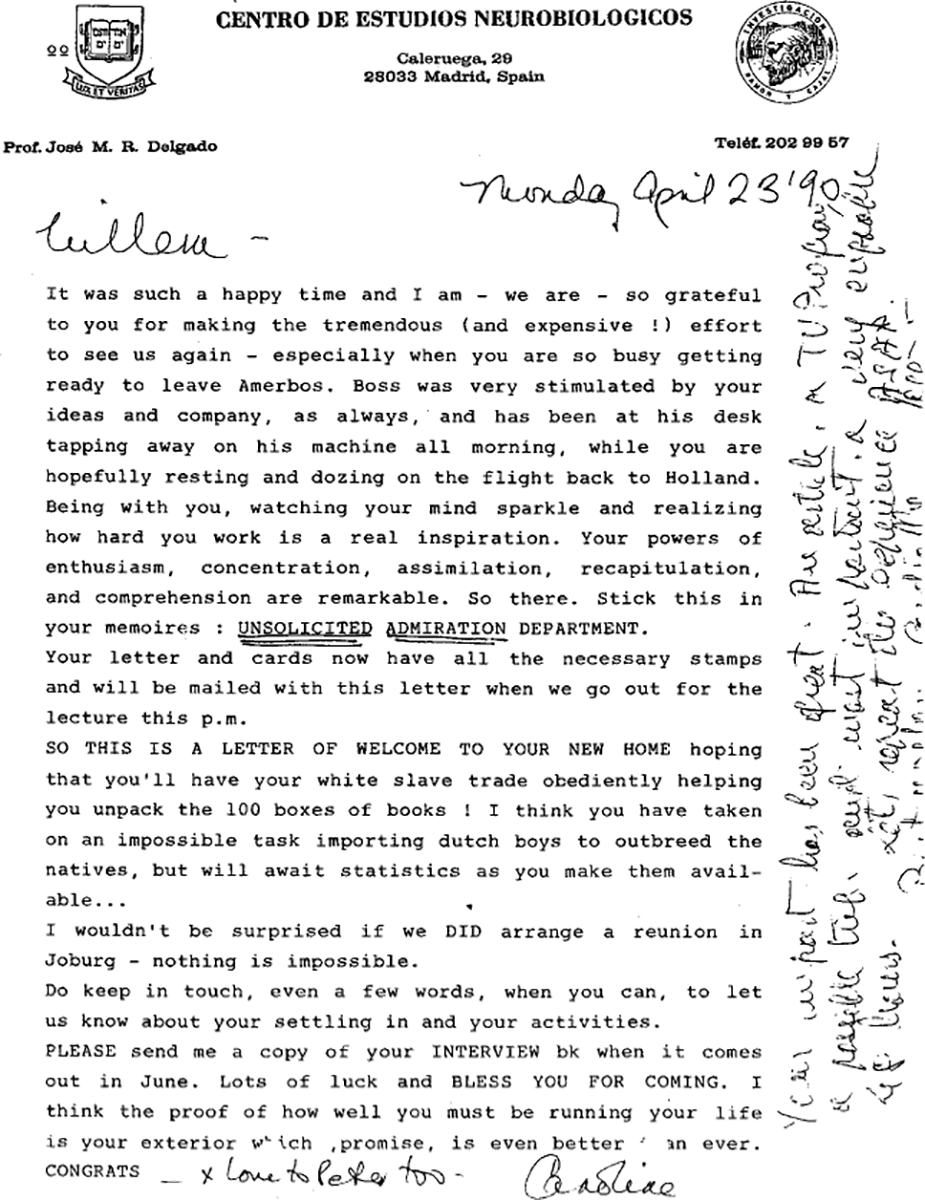 CENTRO DE ESTUDIOS NEUROBIOLOGICOS
Caleruega, 29
28033 Madrid, Spain
LUX ET VERITAS
INVESTIGACION
RAMON Y CAJAL
Prof. José M. R. Delgado
Teléf. 202 99 57
Monday April 23 '90
Willem -
It was such a happy time and I am - we are - so grateful
to you for making the tremendous (and expensive !) effort
to see us again - especially when you are so busy getting
ready to leave Amerbos. Boss was very stimulated by your
ideas and company, as always, and has been at his desk
tapping away on his machine all morning, while you are
hopefully resting and dozing on the flight back to Holland.
Being with you, watching your mind sparkle and realizing
how hard you work is a real inspiration. Your powers of
enthusiasm, concentration, assimilation, recapitulation,
and comprehension are remarkable. So there. Stick this in
your memoires : UNSOLICITED ADMIRATION DEPARTMENT.
Your letter and cards now have all the necessary stamps
and will be mailed with this letter when we go out for the
lecture this p.m.
SO THIS IS A LETTER OF WELCOME TO YOUR NEW HOME hoping
that you'll have your white slave trade obediently helping
you unpack the 100 boxes of books ! I think you have taken
on an impossible task importing dutch boys to outbreed the
natives, but will await statistics as you make them avail-
able...
I wouldn't be surprised if we DID arrange a reunion in
Joburg - nothing is impossible.
Do keep in touch, even a few words, when you can, to let
us know about your settling in and your activities.
PLEASE send me a copy of your INTERVIEW bk when it comes
out in June. Lots of luck and BLESS YOU FOR COMING. I
think the proof of how well you must be running your life
is your exterior which ,promise, is even better than ever.
CONGRATS - x Love to Peter too -
Caroline
Your impact has been great. An article, a TV Program,
a possible trip, and most important, a very enjoyable
48 hours. Let's repeat the experience ASAP.